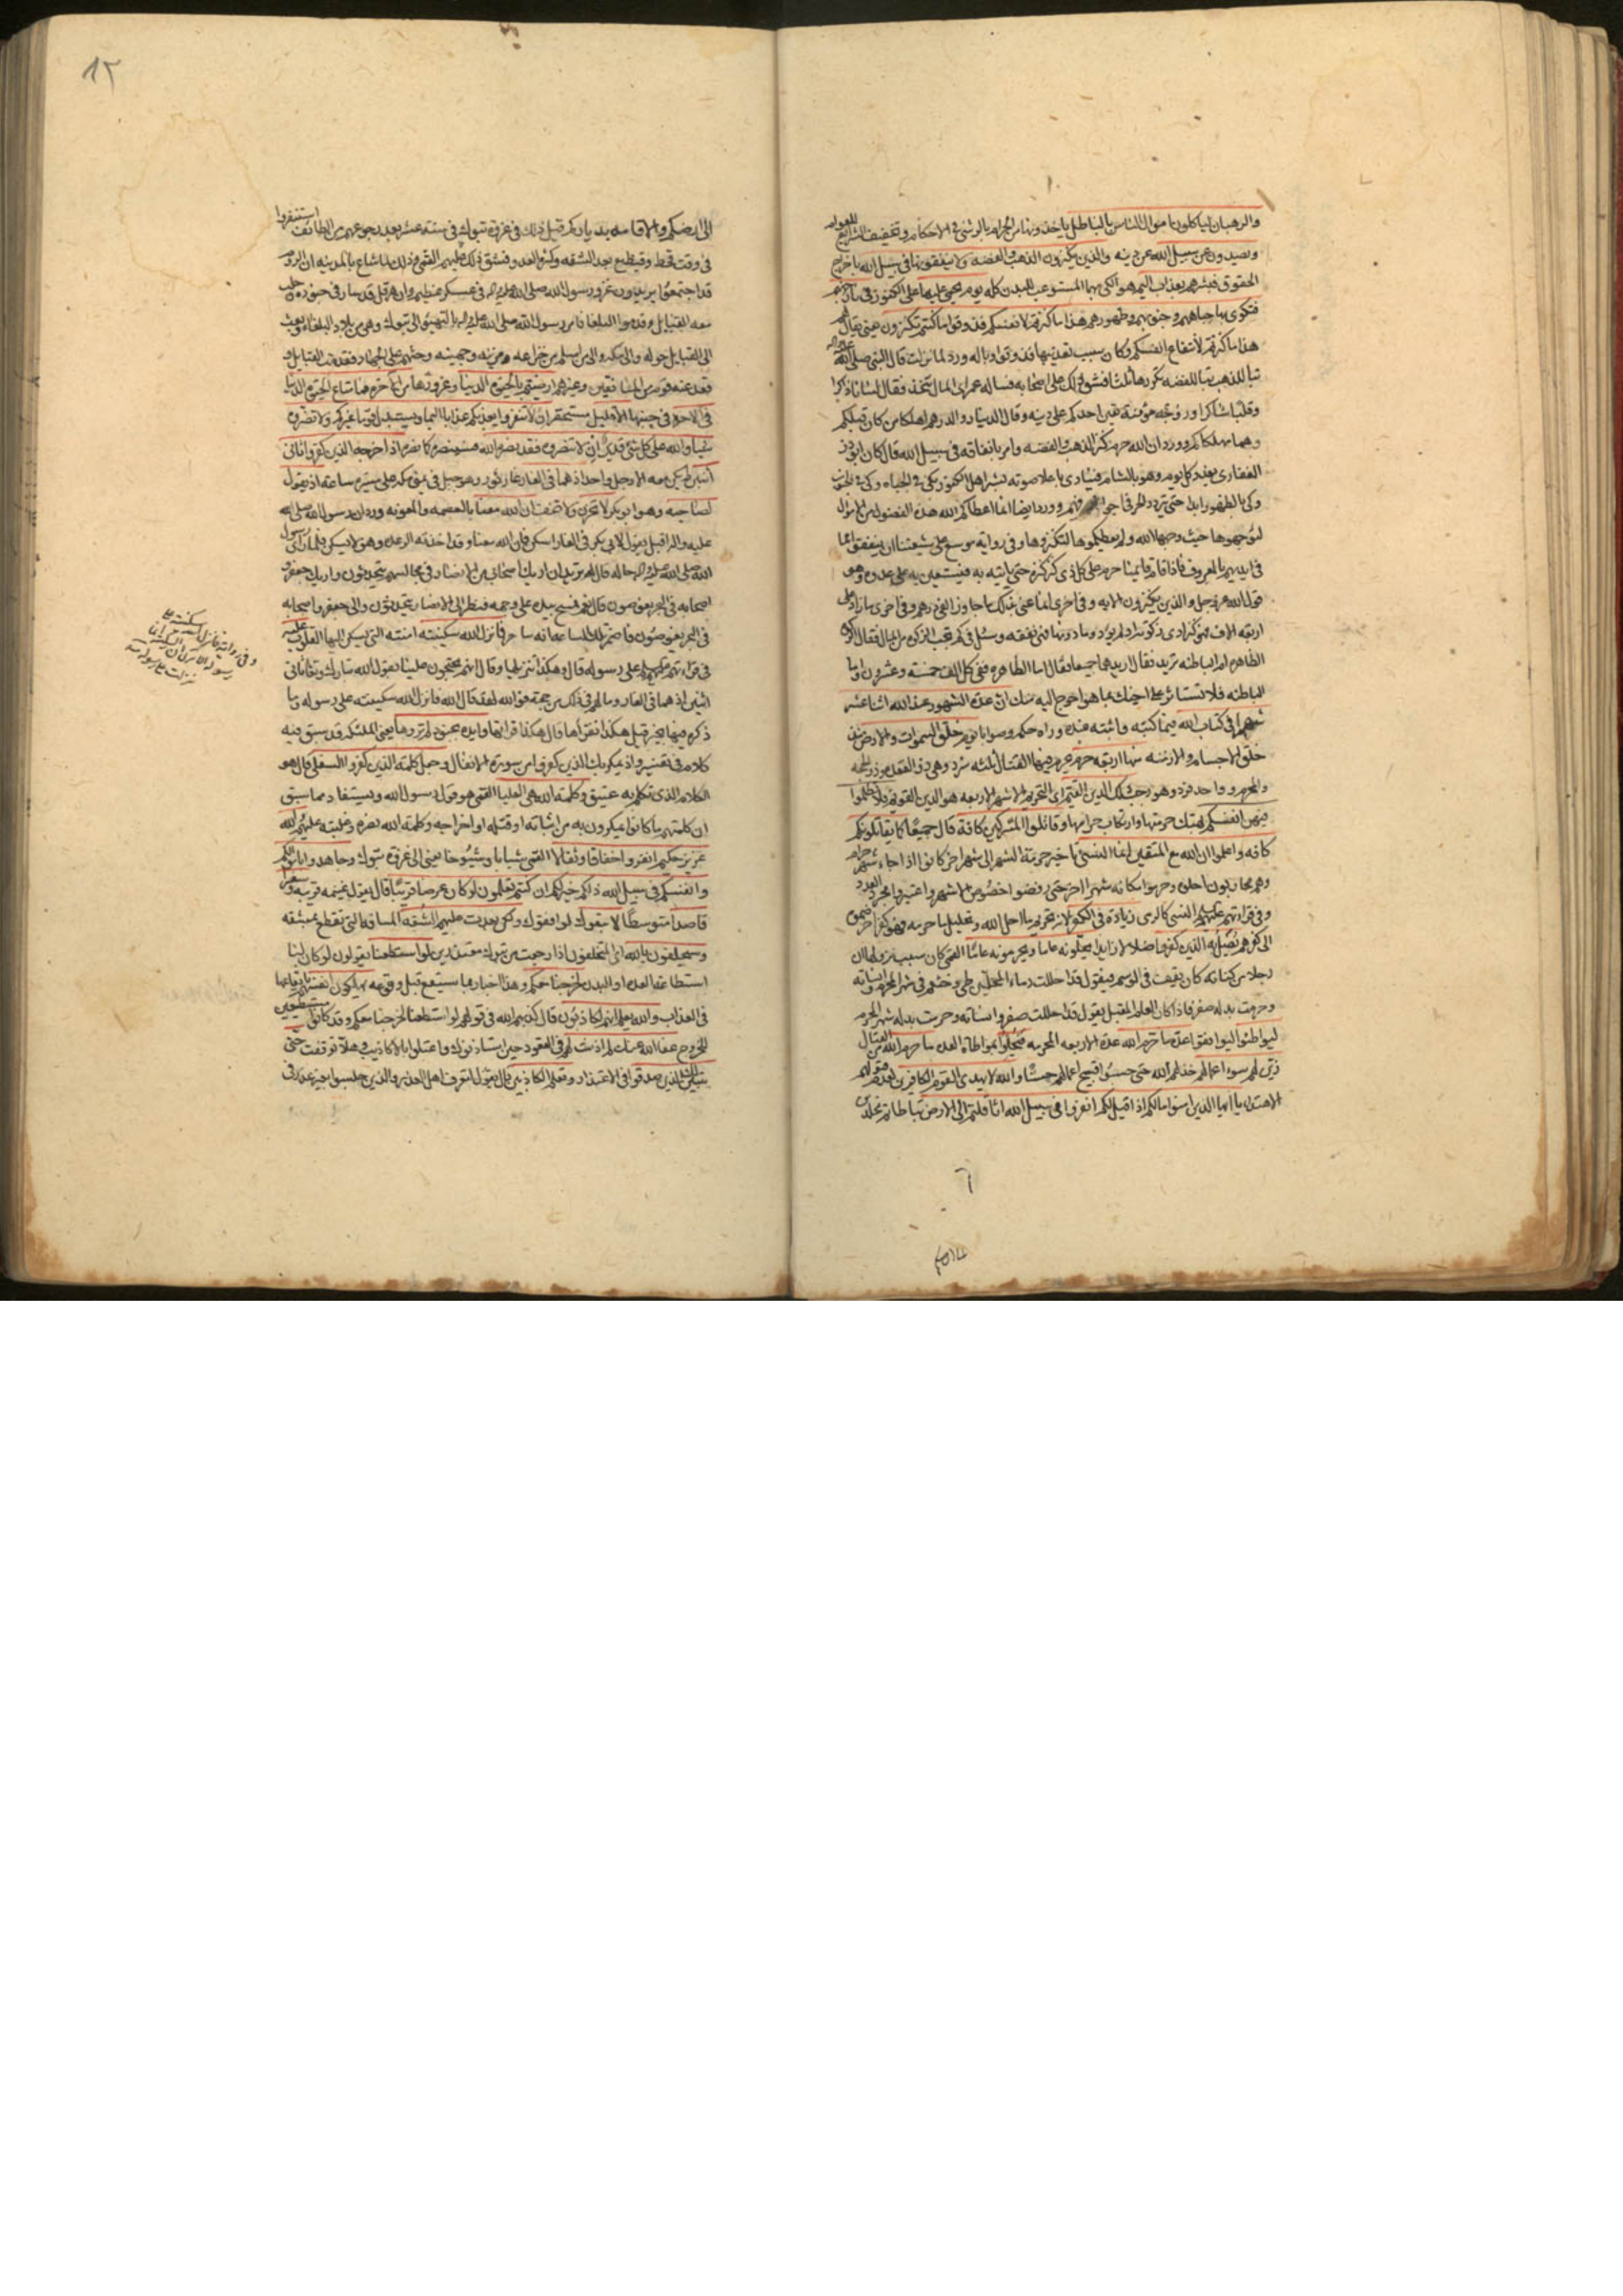 والرهبان لياكلون اموال الناس بالباطل ياخذونها من الحرام بالرشى فى الاحكام وتخفيف الشرايع للعوام
ويصدون عن سبيل الله عن دينه والذين يكنزون الذهب والفضه ولا ينفقونها فى سبيل الله باخراج
الحقوق فبشرهم بعذاب اليم هو الكى بهما المستوعب للبدن كله يوم يحمى عليها على الكنوز فى نار جهنم
فتكوى بها جباههم وجنوبهم وظهورهم هذا ما كنزتم لانفسكم فذوقوا ما كنتم تكنزون يعنى يقال لهم
هذا ما كنزتم لانتفاع انفسكم وكان سبب تعذيبها فذوقوا وباله ورد لما نزلت قال النبى صلى الله عليه واله
تبا للذهب تبا للفضه يكررها ثلثا فشق ذلك على اصحابه فساله عمر اى المال نتخذ فقال لسانا ذاكرا
وقلبا شاكرا وزوجه مؤمنة تعين احدكم على دينه وقال الدينار والدرهم اهلكا من كان قبلكم
وهما مهلكاكم وورد ان الله حرم كنز الذهب والفضه وامر بانفاقه فى سبيل الله قال كان ابوذر
الغفارى يغدو كل يوم وهو بالشام فينادى باعلا صوته بشر اهل الكنوز بكى فى الجباه وكى فى الجنوب
وكى بالظهور ابدا حتى يتردد الحر فى اجوافهم وورد ايضا انما اعطاكم الله هذه الفضول من الاموال
لتوجهوها حيث وجهها الله ولم يعطيكموها لتكنزوها وفى رواية موسع على شيعتنا ان ينفقوا مما
فى ايديهم بالمعروف فاذا قام قايمنا حرم على كل ذى كنز كنزه حتى ياتيه به فيستعين به على عدوه وهو
قول الله عز وجل والذين يكنزون الايه وفى اخرى انما عنى بذلك ما جاوز الفى درهم وفى اخرى ما زاد على
اربعه الاف فهو كنز ادى زكوته او لم يؤد وما دونها فهى نفقه وسئل فى كم تجب الزكوه من المال فقال الزكوه
الظاهره ام الباطنه تريد فقال اريدهما جميعا فقال اما الظاهره ففى كل الف خمسه وعشرون واما
الباطنه فلا تستاثر على اخيك بما هو احوج اليه منك ان عدة الشهور عند الله اثنا عشر
شهرا فى كتاب الله فيما كتبه واثبته عنده وراه حكمه وصوابا يوم خلق السموات والارض منذ
خلق الاجسام والازمنه منها اربعه حرم يحرم فيها القتال ثلثه سرد وهى ذو القعده وذو الحجه
والمحرم وواحد فرد وهو رجب ذلك الدين القيم اى التحريم الاشهر الاربعه هو الدين القويم فلا تظلموا
فيهن انفسكم بهتك حرمتها وارتكاب حرامها وقاتلوا المشركين كافة قال جميعا كما يقاتلونكم
كافه واعلموا ان الله مع المتقين انما النسئ تاخير حرمة الشهر الى شهر اخر كانوا اذا جاء شهر حرام
وهم محاربون احلوه وحرموا مكانه شهرا اخر حتى رفضوا خصوص الاشهر واعتبروا مجرد العدد
وفى قرائتهم عليهم النسى كالرمى زيادة فى الكفر لانه تحريم ما احل الله وتحليل ما حرمه فهو كفر اخر ضموه
الى كفرهم يضل به الذين كفروا ضلالا زايدا يحلونه عاما ويحرمونه عاما القمى كان سبب نزولها ان
رجلا من كنانه كان يقف فى الموسم فيقول قد احللت دماء المحلين طى وخثعم فى شهر المحرم وانساته
وحرمت بدله صفر فاذا كان العام المقبل يقول قد احللت صفر وانساته وحرمت بدله شهر المحرم
ليواطئوا ليوافقوا عدة ما حرم الله عدة الاربعه المحرمه فيحلوا بمواطاة العده ما حرم الله من القتال
زين لهم سوء اعمالهم خذلهم الله حتى حسبوا قبيح اعمالهم حسنا والله لا يهدى القوم الكافرين
الاهتداء يا ايها الذين امنوا مالكم اذا قيل لكم انفروا فى سبيل الله اثاقلتم الى الارض تباطاتم مخلدين
١٢
الى ارضكم والاقامه بدياركم قيل ذلك فى غزوة تبوك فى سنه عشر بعد رجوعهم من الطائف استنفروا
فى وقت قحط وقيظ مع بعد الشقه وكثرة العدو فشق ذلك عليهم القمى وذلك لما شاع بالمدينه ان الروم
قد اجتمعوا يريدون غزو رسول الله صلى الله عليه واله فى عسكر عظيم وان هرقل قد سار فى جنوده وجلب
معه القبايل وقدموا البلقا فامر رسول الله صلى الله عليه واله بالتهيؤ الى تبوك وهى من بلاد البلقاء وبعث
الى القبايل حوله والى مكه والى من اسلم من خزاعه ومزينه وجهينه وحثهم على الجهاد فقدمت القبايل و
قعد عنه قوم من المنافقين وغيرهم ارضيتم بالحيوه الدنيا وغرورها من الاخره فما متاع الحيوه الدنيا
فى الاخره فى جنبها الا قليل مستحقر ان لا تنفروا يعذبكم عذابا اليما ويستبدل قوما غيركم ولا تضروه
شيئا والله على كل شئ قدير ان لا تنصروه فقد نصره الله فسينصره كما نصره اذ اخرجه الذين كفروا ثانى
اثنين لم يكن معه الا رجل واحد اذ هما فى الغار غار ثور وهو جبل فى يمنى مكه على مسيره ساعه اذ يقول
لصاحبه وهو ابوبكر لا تحزن لا تخف ان الله معنا بالعصمه والمعونه ورد ان رسول الله صلى الله
عليه واله اقبل يقول لابى بكر فى الغار اسكن فان الله معنا وقد اخذته الرعده وهو لا يسكن فلما راى رسول
الله صلى الله عليه واله حاله قال له تريد ان اريك اصحابى من الانصار فى مجالسهم يتحدثون واريك جعفر و
اصحابه فى البحر يغوصون قال نعم فمسح بيده على وجهه فنظر الى الانصار يتحدثون والى جعفر واصحابه
فى البحر يغوصون فاضمر تلك الساعه انه ساحر فانزل الله سكينته امنته التى يسكن اليها القلوب عليه
فى قراءتهم عليهم على رسوله قال وهكذا تنزيلها وقال انهم يحتجون علينا بقول الله تبارك وتعالى ثانى
اثنين اذ هما فى الغار وما لهم فى ذلك من حجة فوالله لقد قال الله فانزل الله سكينته على رسوله وما
ذكره فيها بخير قيل هكذا تقرأها قال هكذا قرأتها وايده بجنود لم تروها يعنى الملئكه قد سبق فيه
كلام فى تفسير واذ يمكر بك الذين كفروا من سورة الانفال وجعل كلمه الذين كفروا السفلى قال هو
الكلام الذى تكلم به عتيق وكلمه الله هى العليا القمى هو قول رسول الله ويستفاد مما سبق
ان كلمتهم ما كانوا يمكرون به من اثباته او قتله او اخراجه وكلمه الله نصره وغلبته عليهم والله
عزيز حكيم انفروا خفافا وثقالا القمى شبابا وشيوخا يعنى الى غزوة تبوك وجاهدوا باموالكم
وانفسكم فى سبيل الله ذلكم خير لكم ان كنتم تعلمون لو كان عرضا قريبا قال يقول غنيمه قريبه وسفرا
قاصدا متوسطا لاتبعوك لوافقوك ولكن بعدت عليهم الشقه المسافه التى تقطع بمشقه
وسيحلفون بالله اى المتخلفون اذا رجعت من تبوك معتذرين لو استطعنا يقولون لو كان لنا
استطاعه العده او البدن لخرجنا معكم وهذا اخبار بما سيقع قبل وقوعه يهلكون انفسهم بايقاعها
فى العذاب والله يعلم انهم لكاذبون قال كذبهم الله فى قولهم لو استطعنا لخرجنا معكم وقد كانوا مستطيعين
للخروج عفا الله عنك لم اذنت لهم فى القعود حين استاذنوك واعتلوا بالاكاذيب وهلا توقفت حتى
يتبين لك الذين صدقوا فى الاعتذار وتعلم الكاذبين قال يقول لتعرف اهل العذر والذين جلسوا بغير عذر فى
وفى رواية فانزل الله سكينته على
رسوله